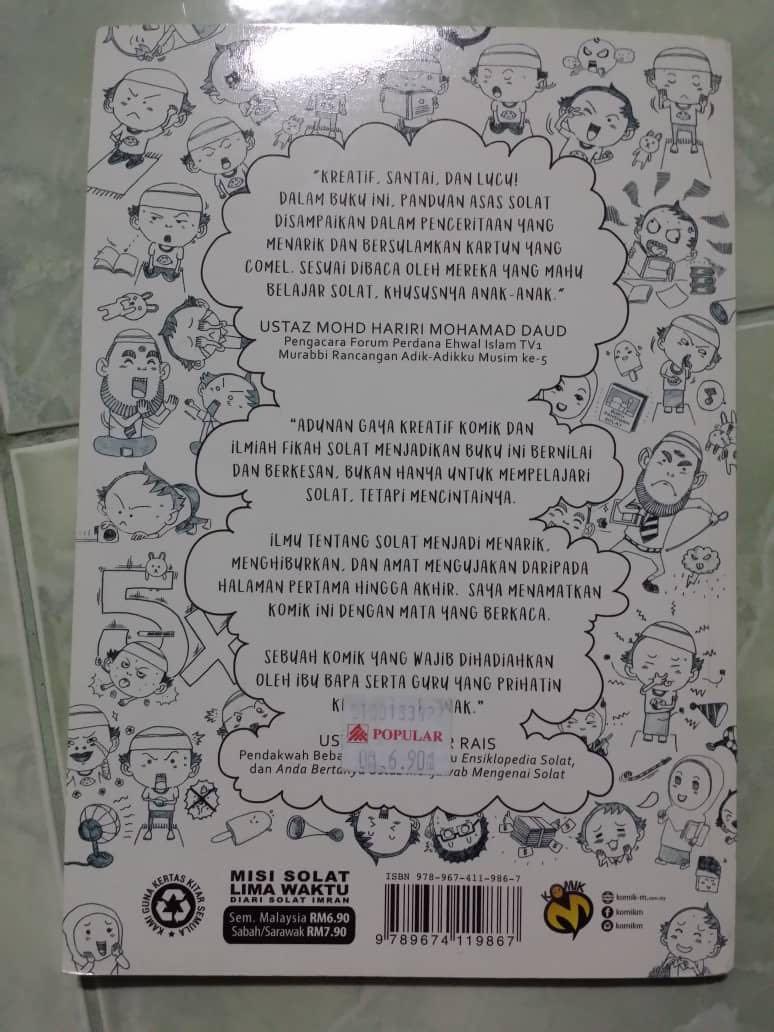 "KREATIF, SANTAI, DAN LUCU!
DALAM BUKU INI, PANDUAN ASAS SOLAT
DISAMPAIKAN DALAM PENCERITAAN YANG
MENARIK DAN BERSULAMKAN KARTUN YANG
COMEL. SESUAI DIBACA OLEH MEREKA YANG MAHU
BELAJAR SOLAT, KHUSUSNYA ANAK-ANAK."
USTAZ MOHD HARIRI MOHAMAD DAUD
Pengacara Forum Perdana Ehwal Islam TV1
Murabbi Rancangan Adik-Adikku Musim ke-5
"ADUNAN GAYA KREATIF KOMIK DAN
ILMIAH FIKAH SOLAT MENJADIKAN BUKU INI BERNILAI
DAN BERKESAN, BUKAN HANYA UNTUK MEMPELAJARI
SOLAT, TETAPI MENCINTAINYA.
ILMU TENTANG SOLAT MENJADI MENARIK,
MENGHIBURKAN, DAN AMAT MENGUJAKAN DARIPADA
HALAMAN PERTAMA HINGGA AKHIR. SAYA MENAMATKAN
KOMIK INI DENGAN MATA YANG BERKACA.
5X
SEBUAH KOMIK YANG WAJIB DIHADIAHKAN
OLEH IBU BAPA SERTA GURU YANG PRIHATIN
POPULAR
6.90
RAIS
Pendakwah Ensiklopedia Solat,
dan Anda Mengenai Solat
KAMI GUNA KERTAS KITAR SEMULA
MISI SOLAT
LIMA WAKTU
DIARI SOLAT IMRAN
Sem. Malaysia RM6.90
Sabah/Sarawak RM7.90
ISBN 978-967-411-986-7
9 789674 119867
KOMIK M
komik-m.com.my
komikm
komikm